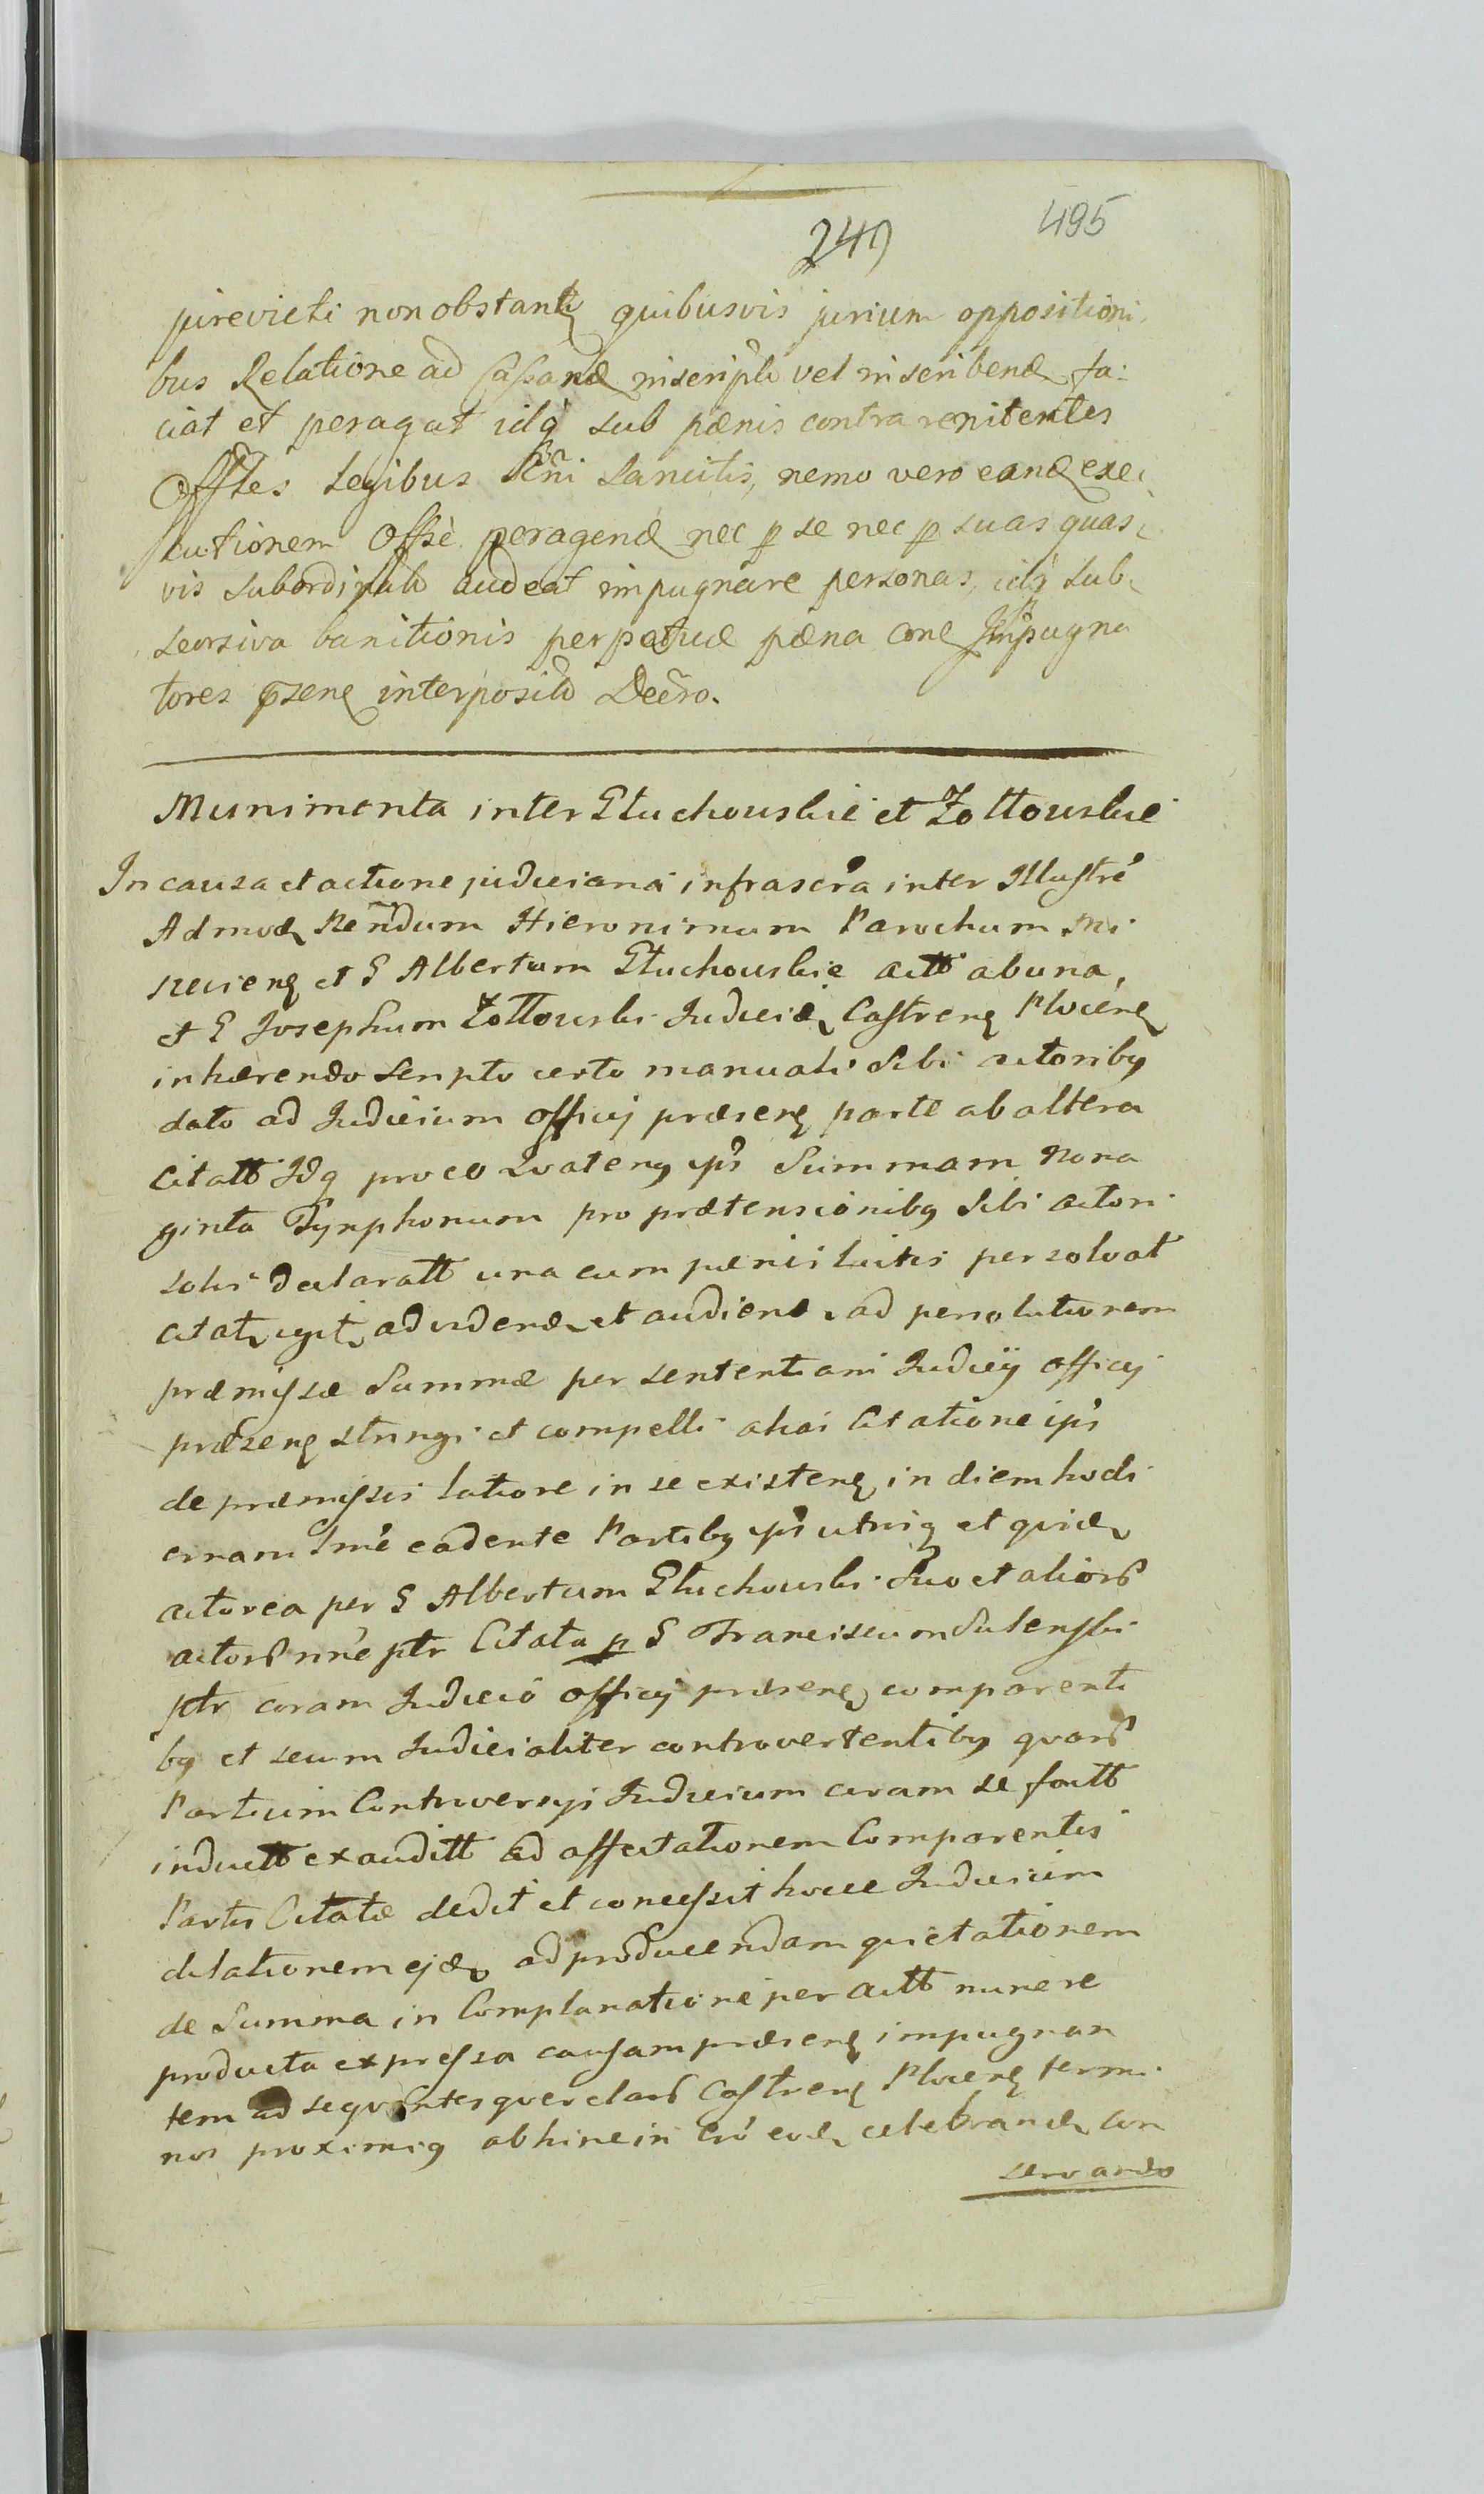 249 495
jurevicti non obstantȩ quibusvis jurium oppositioni
bus Relatione ad Cassandȩ inscripti vel inscribendȩ fa:
ciat et peragat idq sub pænis contra renitentes
Offles Legibus Rñi Sancitis, nemo vero eandȩ exe
cutionem Offsè peragendȩ nec p se nec p suas quas
vis subordinatȩ audeat impugnare personas, idq sub
seorsiva banitionis perpetuæ pæna cone Impugna
tores psenȩ interposito Decro.
Munimenta inter Głuchowskie et Żółtowskie
In causa et actione judiciaria infrascra inter Illustré
Admodȩ Rendum Hieronimum Parochum Mi
szeviensȩ et G Albertum Głuchowskie actt ab una,
et G Josephum Żółtowski Judiciȩ Castrensȩ Plocensȩ
inhærendo scripto certo manuali sibi actoribȝ
dato ad Judicium officij præsensȩ parte ab altera
Citatt Idq pro eo Quatenȝ ips Summam Nona
ginta Tynphonum pro prætensionibȝ sibi actori
solvi declaratt una cum pænis luitis persolvat
citatȩ egitȩ ad videndȩ et audiendȩ ad persolutionem
præmissæ Summæ per sententiam Judicij officij
præsensȩ stringi et compelli aliai Citatione ips
de præmissis latiore in se existenȩ in diem hodi
ernam lmè cadente Partibȝ ips utrisqȝ et quidȩ
actorea per G Albertum Głuchowski suo et alior
actor nne ptr Citata p G Franciscum Sulenski
ptr coram Judicio officij præsensȩ comparenti
bȝ et secum Judicialiter controvertentibȝ quar
Partium Controversijs Judicium coram se factt
inductt exauditt ad affectationem Comparentis
Partis Citatæ dedit et concessit hocce Judicium
dilationem ejȩ ad producendam quietationem
de Summa in Complanatione per actt nunc re
producta expressa causam præsensȩ impugnan
tem ad sequentes querelar Castrensȩ Plocensȩ termi
nos proximiȝ abhinc in Cró eodȩ celebrandȩ con
servando